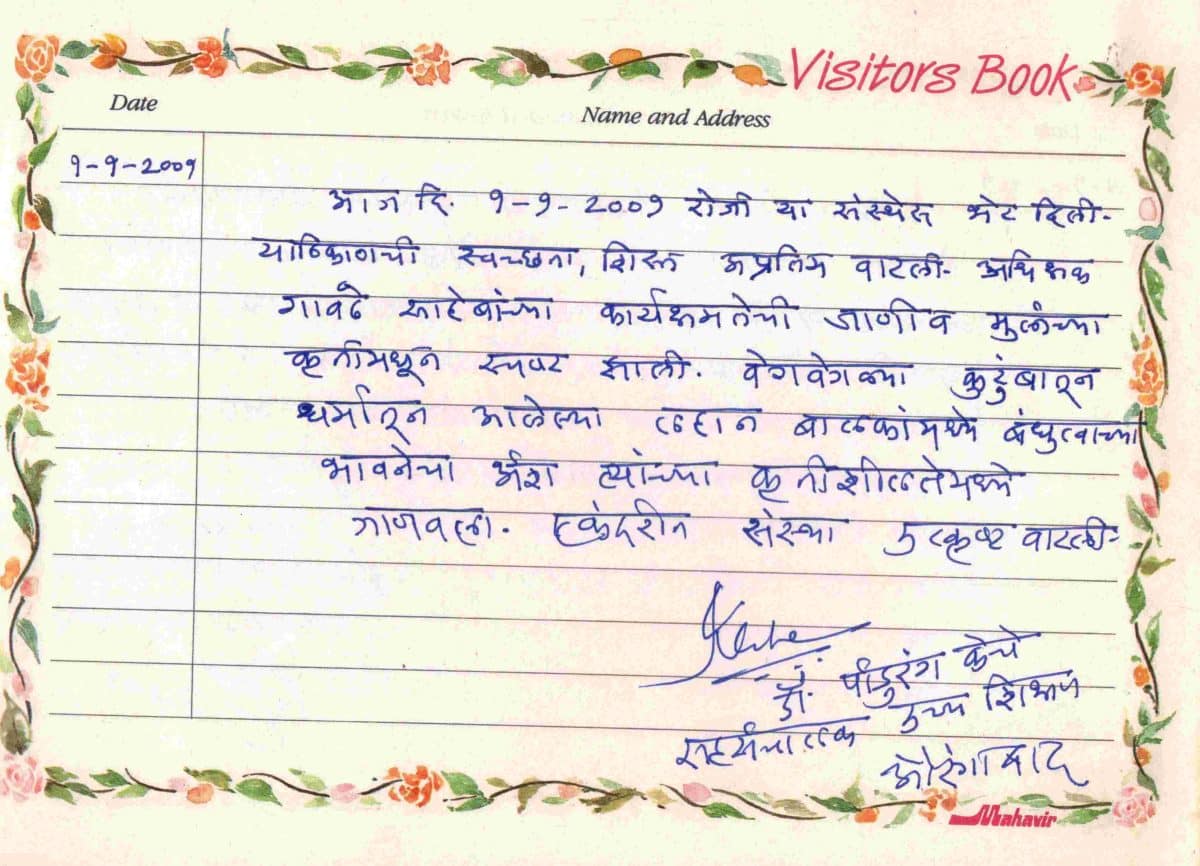 Visitors Book
Date
Name and Address
१-९-२००१
आज दि. १-९-२००१ रोजी या संस्थेस भेट दिली.
याठिकाणची स्वच्छता, शिस्त अप्रतिम वाटली. अधिक्षक
गावढे साहेबांच्या कार्यक्षमतेची जाणीव मुलांच्या
कृतीमधून स्पष्ट झाली. वेगवेगळ्या कुटुंबातून
धर्मातून आलेल्या लहान बालकांमध्ये बंधुत्वाच्या
भावनेचा अंश त्यांच्या कृतीशीलतेमध्ये
जाणवला. एकंदरीत संस्था उत्कृष्ट वाटली.
डॉ. पांडुरंग केचे
सहसंचालक उच्च शिक्षण
औरंगाबाद
Mahavir